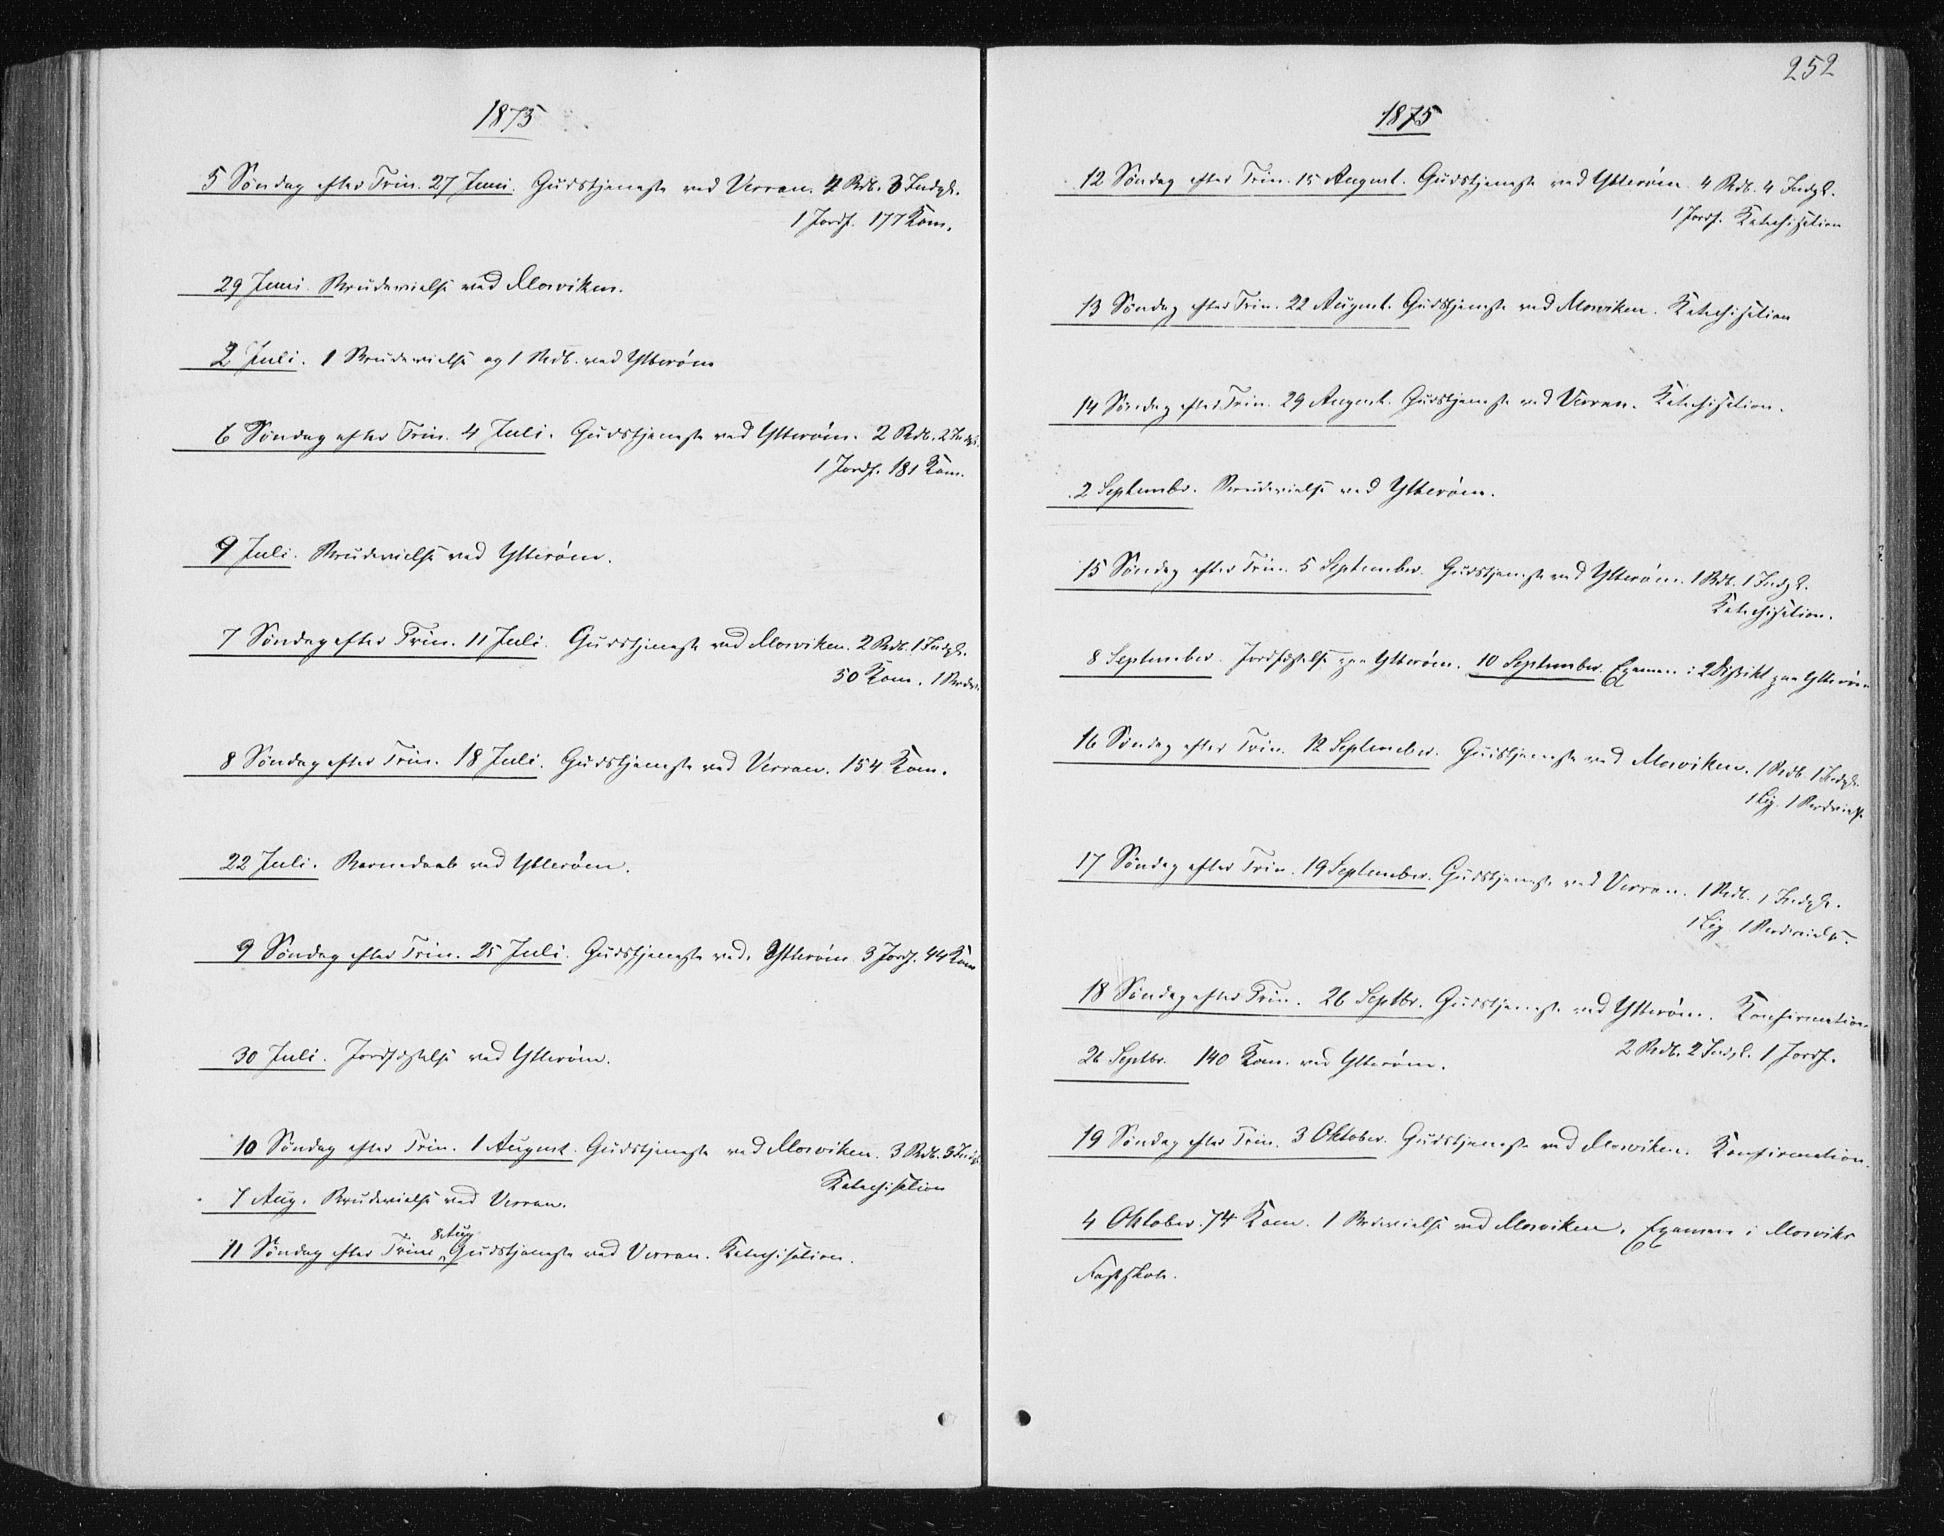 1875
5 Søndag efter Trin. 27 Juni. Gudstjeneste ved Verran. 4 Bdb. 3 Indgk.
1 Jordf. 177 Kom.
29 Juni. Brudevielse ved Mosviken.
2 Juli. 1 Brudevielse og 1 Bdb. ved Ytterøen
6 Søndag efter Trin. 4 Juli. Gudstjeneste ved Ytterøen. 2 Bdb. 2 Indgk.
1 Jordf. 181 Kom.
9 Juli. Brudevielse ved Ytterøen.
7 Søndag efter Trin. 11 Juli. Gudstjeneste ved Mosviken. 2 Bdb. 1 Indgk.
50 Kom. 1
8 Søndag efter Trin. 18 Juli. Gudstjeneste ved Verran. 154 Kom.
22 Juli. Barnedaab ved Ytterøen.
9 Søndag efter Trin. 25 Juli. Gudstjeneste ved Ytterøen 3 Jordf. 44 Kom
30 Juli. Jordfæstelse ved Ytterøen.
10 Søndag efter Trin. 1 August. Gudstjeneste ved Mosviken. 3 Bdb. 3 Indgk.
Katechisation
7 Aug. Brudevielse ved Verran.
8 Aug
11 Søndag efter Trin. Gudstjeneste ved Verran. Katechisation.
252
1875
12 Søndag efter Trin. 15 August. Gudstjeneste ved Ytterøen. 4 Bdb. 4 Indgk.
1 Jordf. Katechisation
13 Søndag efter Trin. 22 August. Gudstjeneste ved Mosviken. Katechisation
14 Søndag efter Trin. 29 August. Gudstjeneste ved Verran. Katechisation.
2 Septembr. Brudevielse ved Ytterøen.
15 Søndag efter Trin. 5 September. Gudstjeneste ved Ytterøen. 1 Bdb. 1 Indgk.
Katechisation.
8 September. Jordfæstelse paa Ytterøen. 10 September. Examen i 2 Distrikt paa Ytterøen
16 Søndag efter Trin. 12 September. Gudstjeneste ved Mosviken. 1 Bdb. 1 Indgk.
1 Lig. 1 Brudvielse.
17 Søndag efter Trin. 19 September. Gudstjeneste ved Verran. 1 Bdb. 1 Indgk.
1 Lig. 1 Brudvielse.
18 Søndag efter Trin. 26 Septbr. Gudstjeneste ved Ytterøen. Konfirmation
2 Bdb. 2 Indgk. 1 Jordf.
26 Septbr. 140 Kom. ved Ytterøen.
19 Søndag efter Trin. 3 Oktober. Gudstjeneste ved Mosviken. Konfirmation.
4 Oktober. 74 Kom. 1 Brdevielse ved Mosviken. Examen i Mosviks
Fastskole.